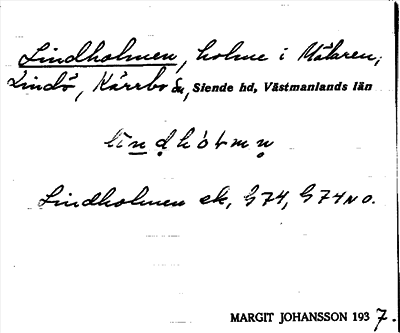 Lindholmen, holme i Mälaren,
Lindö, Kärrbo sn, Siende hd, Västmanlands län
Lindholmen ek, G74, G74NO.
MARGIT JOHANSSON 1937.